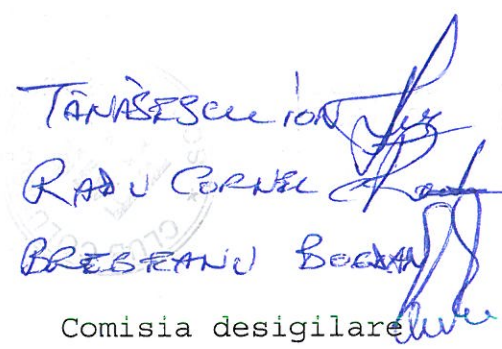 TĂNĂSESCU ION
RADU CORNEL
BREBEANU BOGDAN
Comisia desigilare